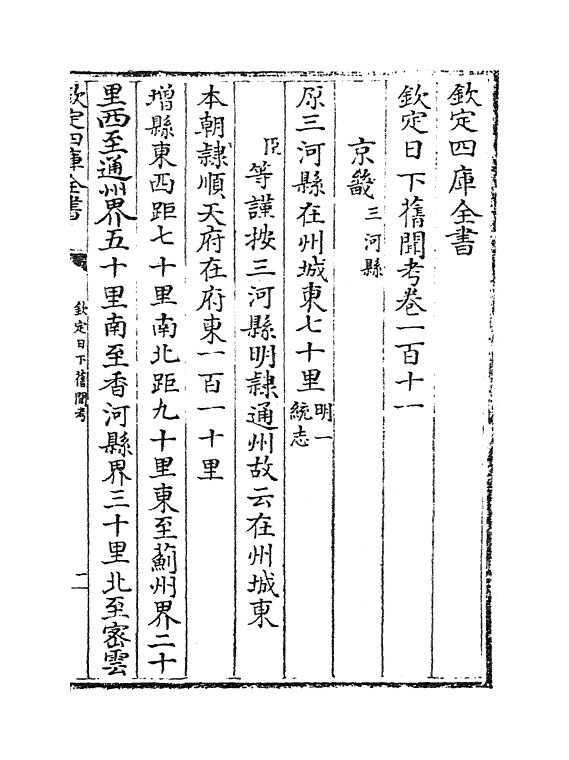 欽定四庫全書
欽定日下舊聞考卷一百十一
京畿三河縣
原三河縣在州城東七十里明一統志
臣等謹按三河縣明隷通州故云在州城東
本朝隷順天府在府東一百一十里
增縣東西距七十里南北距九十里東至薊州界二十
里西至通州界五十里南至香河縣界三十里北至密雲
欽定四庫全書
欽定日下舊聞考